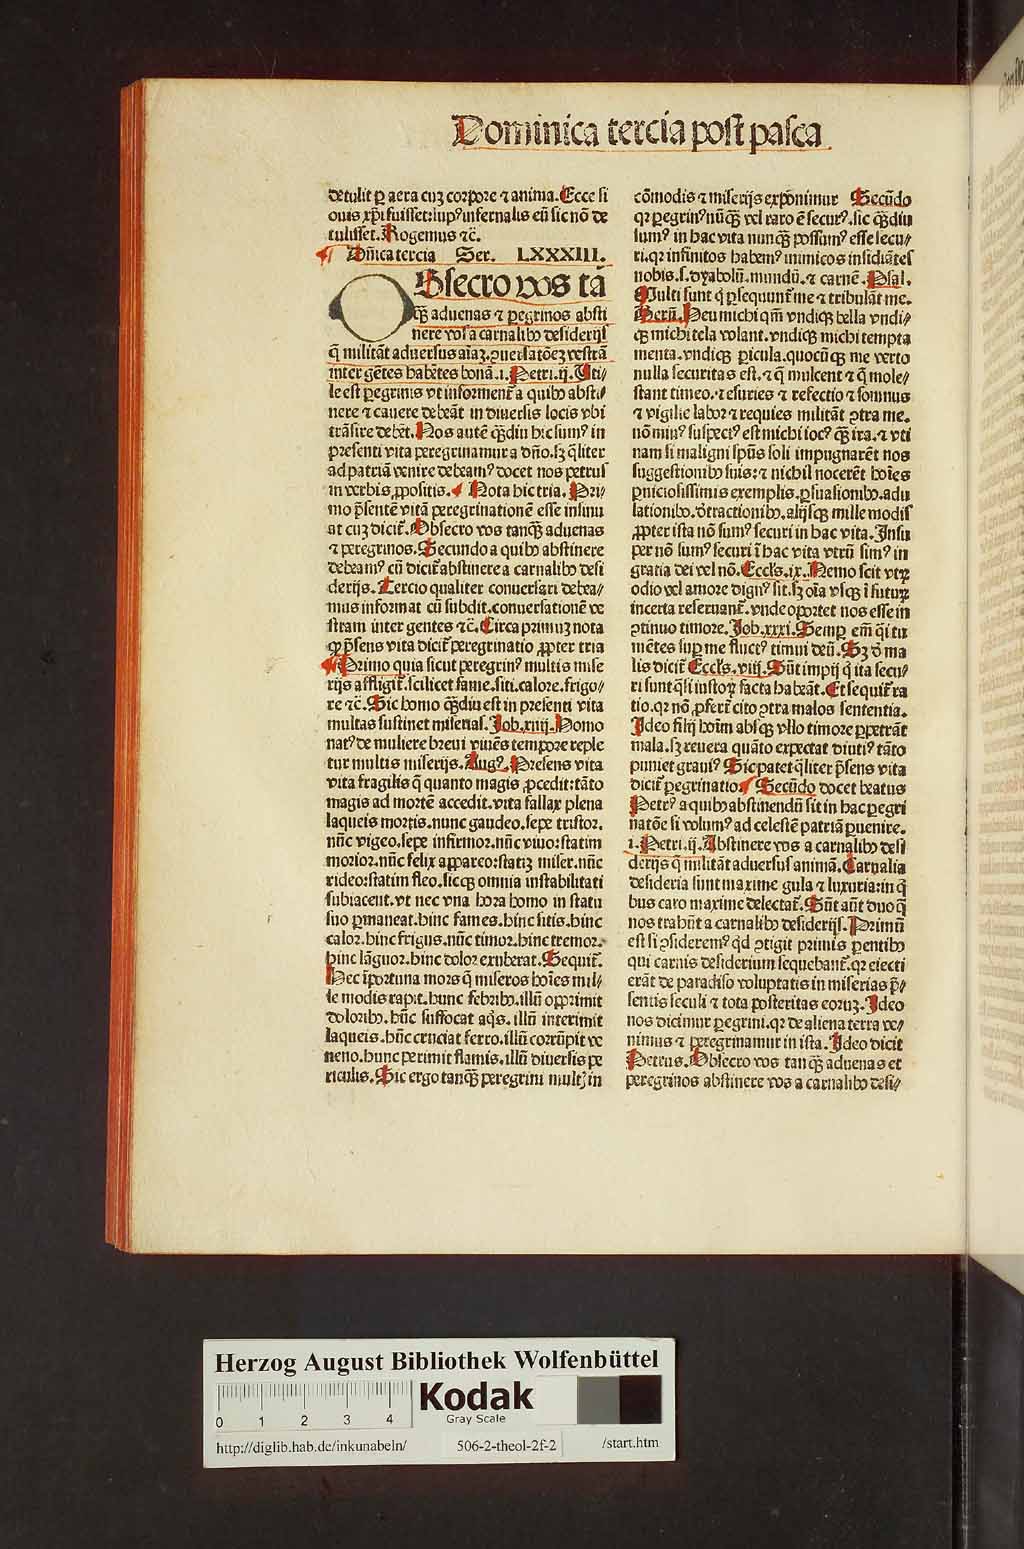 Dominica tercia post pasca
detulit ꝑ aera cuʒ corpore ⁊ anima. Ecce si
ouis xp̄i fuisset: lupꝰ infernalis eū sic nō de
tulisset. Rogemus ⁊c̄.
Dn̄ica tercia Ser. LXXXIII.
OBsecro vos tā
qȝ̄ aduenas ⁊ ꝑegrinos absti
nere vos a carnalibꝰ desiderijs
q̄ militāt aduersus aīaʒ. ꝯuersatōeʒ vestrā
inter gētes habētes bonā. i. Petri. ij. Uti⸗
le est ꝑegrinis vt informent̄ a quibꝰ absti⸗
nere ⁊ cauere debeāt in diuersis locis vbi
trāsire debēt. Nos autē qȝ̄diu hic sumꝰ in
presenti vita peregrinamur a dn̄o. sȝ q̄liter
ad patriā venire debeamꝰ docet nos petrus
in verbis ꝓpositis. Nota hic tria. Pri⸗
mo p̄sentē vitā peregrinationē esse insinu
at cuʒ dicit̄. Obsecro vos tanqȝ̄ aduenas
⁊ peregrinos. Secundo a quibꝰ abstinere
debeamꝰ cū dicit̄ abstinere a carnalibꝰ desi
derijs. Tercio qualiter conuersari debea⸗
mus informat cū subdit. conuersationē ve
stram inter gentes ⁊c̄. Circa primuʒ nota
ꝙ p̄sens vita dicit̄ peregrinatio ꝓpter tria
Primo quia sicut peregrinꝰ multis mise
rijs affligit̄. scilicet fame. siti. calore. frigo⸗
re ⁊c̄. Sic homo qȝ̄diu est in presenti vita
multas sustinet miserias. Job. xiiij. Homo
natꝰ de muliere breui viuēs tempore reple
tur multis miserijs. Augꝰ. Presens vita
vita fragilis q̄ quanto magis ꝓcedit: tāto
magis ad mortē accedit. vita fallax plena
laqueis mortis. nunc gaudeo. sepe tristor.
nūc vigeo. sepe infirmor. nūc viuo: statim
morior. nūc felix appareo: statiʒ miser. nūc
rideo: statim fleo. sicqȝ omnia instabilitati
subiacent. vt nec vna hora homo in statu
suo ꝑmaneat. hinc fames. hinc sitis. hinc
calor. hinc frigus. nūc timor. hinc tremor.
hinc lāguor. hinc dolor exuberat. Sequit̄.
Nec īportuna mors q̄ miseros hoīes mil⸗
le modis rapit. hunc febribꝰ. illū opprimit
doloribꝰ. hūc suffocat aqs̄. illū interimit
laqueis. hūc cruciat ferro. illū corrūpit ve
neno. hunc perimit flamis. illū diuersis pe
riculis. Sic ergo tanqȝ̄ peregrini multꝭ in
cōmodis ⁊ miserijs exponimur Secūdo
qꝛ peregrinꝰ nūqȝ̄ vel raro ē securꝰ. sic qȝ̄diu
sumꝰ in hac vita nunqȝ̄ possumꝰ esse secu⸗
ri. qꝛ infinitos habemꝰ inimicos insidiātes
nobis. s. dyabolū. mundū. ⁊ carnē. Psal.
Multi sunt q̇ ꝑsequunt̄ me ⁊ tribulāt me.
Bern̄. Heu michi qm̄ vndiqȝ bella vndi⸗
qȝ michi tela volant. vndiqȝ michi tempta
menta. vndiqȝ ꝑicula. quocūqȝ me verto
nulla securitas est. ⁊ q̄ mulcent ⁊ q̄ mole⸗
stant timeo. ⁊ esuries ⁊ refectio ⁊ somnus
⁊ vigilie labor ⁊ requies militāt ꝯtra me.
nō minꝰ suspectꝰ est michi iocꝰ qȝ̄ ira. ⁊ vti
nam si maligni spūs soli impugnarēt nos
suggestionibꝰ suis: ⁊ nichil nocerēt hoīes
ꝑniciosissimis exemplis. ꝑsuasionibꝰ. adu
lationibꝰ. ꝺtractionibꝰ. alijsqȝ mille modis
ꝓpter ista nō sumꝰ securi in hac vita. Insu
per nō sumꝰ securi ī hac vita vtrū simꝰ in
gratia dei vel nō. Eccl's. ix. Nemo scit vtꝝ
odio vel amore dignꝰ sit. sȝ oīa vsqȝ ī futuꝝ
incerta reseruant̄. vnde oportet nos esse in
ꝯtinuo timore. Job. xxxi. Semꝑ em̄ q̄si tu
mētes suꝑ me fluctꝰ timui deū. Sȝ ꝺ ma
lis dicit̄ Eccl's. viij. Sūt impij q̇ ita secu⸗
ri sunt q̄si iustoꝝ facta habeāt. Et sequit̄ ra
tio. qꝛ nō ꝓfert̄ cito ꝯtra malos sententia.
Ideo filij hoīm absqȝ vllo timore ꝑpetrāt
mala. sȝ reuera quāto expectat diutiꝰ tāto
puniet grauiꝰ. Sic patet q̄liter p̄sens vita
dicit̄ ꝑegrinatio. Secūdo docet beatus
Petrꝰ a quibꝰ abstinendū sit in hac ꝑegri
natōe si volumꝰ ad celestē patriā ꝑuenire.
i. Petri. ij. Abstinere vos a carnalibꝰ desi
derijs q̄ militāt aduersus animā. Carnalia
desideria sunt maxime gula ⁊ luxuria: in q̇
bus caro maxime delectat̄. Sūt aūt duo q̄
nos trahūt a carnalibꝰ desiderijs. Primū
est si ꝯsideremꝰ qd̄ ꝯtigit primis ꝑentibꝰ
qui carnis desiderium sequebant̄. qꝛ eiecti
erāt de paradiso voluptatis in miserias p̄⸗
sentis seculi ⁊ tota posteritas eoruʒ. Ideo
nos dicimur ꝑegrini. qꝛ de aliena terra ve⸗
nimus ⁊ ꝑegrinamur in ista. Ideo dicit
Petrus. Obsecro vos tanqȝ̄ aduenas et
peregrinos abstinere vos a carnalibꝰ desi⸗
Herzog August Bibliothek Wolfenbüttel
0 1 2 3 4
Kodak
Gray Scale
http://diglib.hab.de/inkunabeln/ 506-2-theol-2f-2 /start.htm